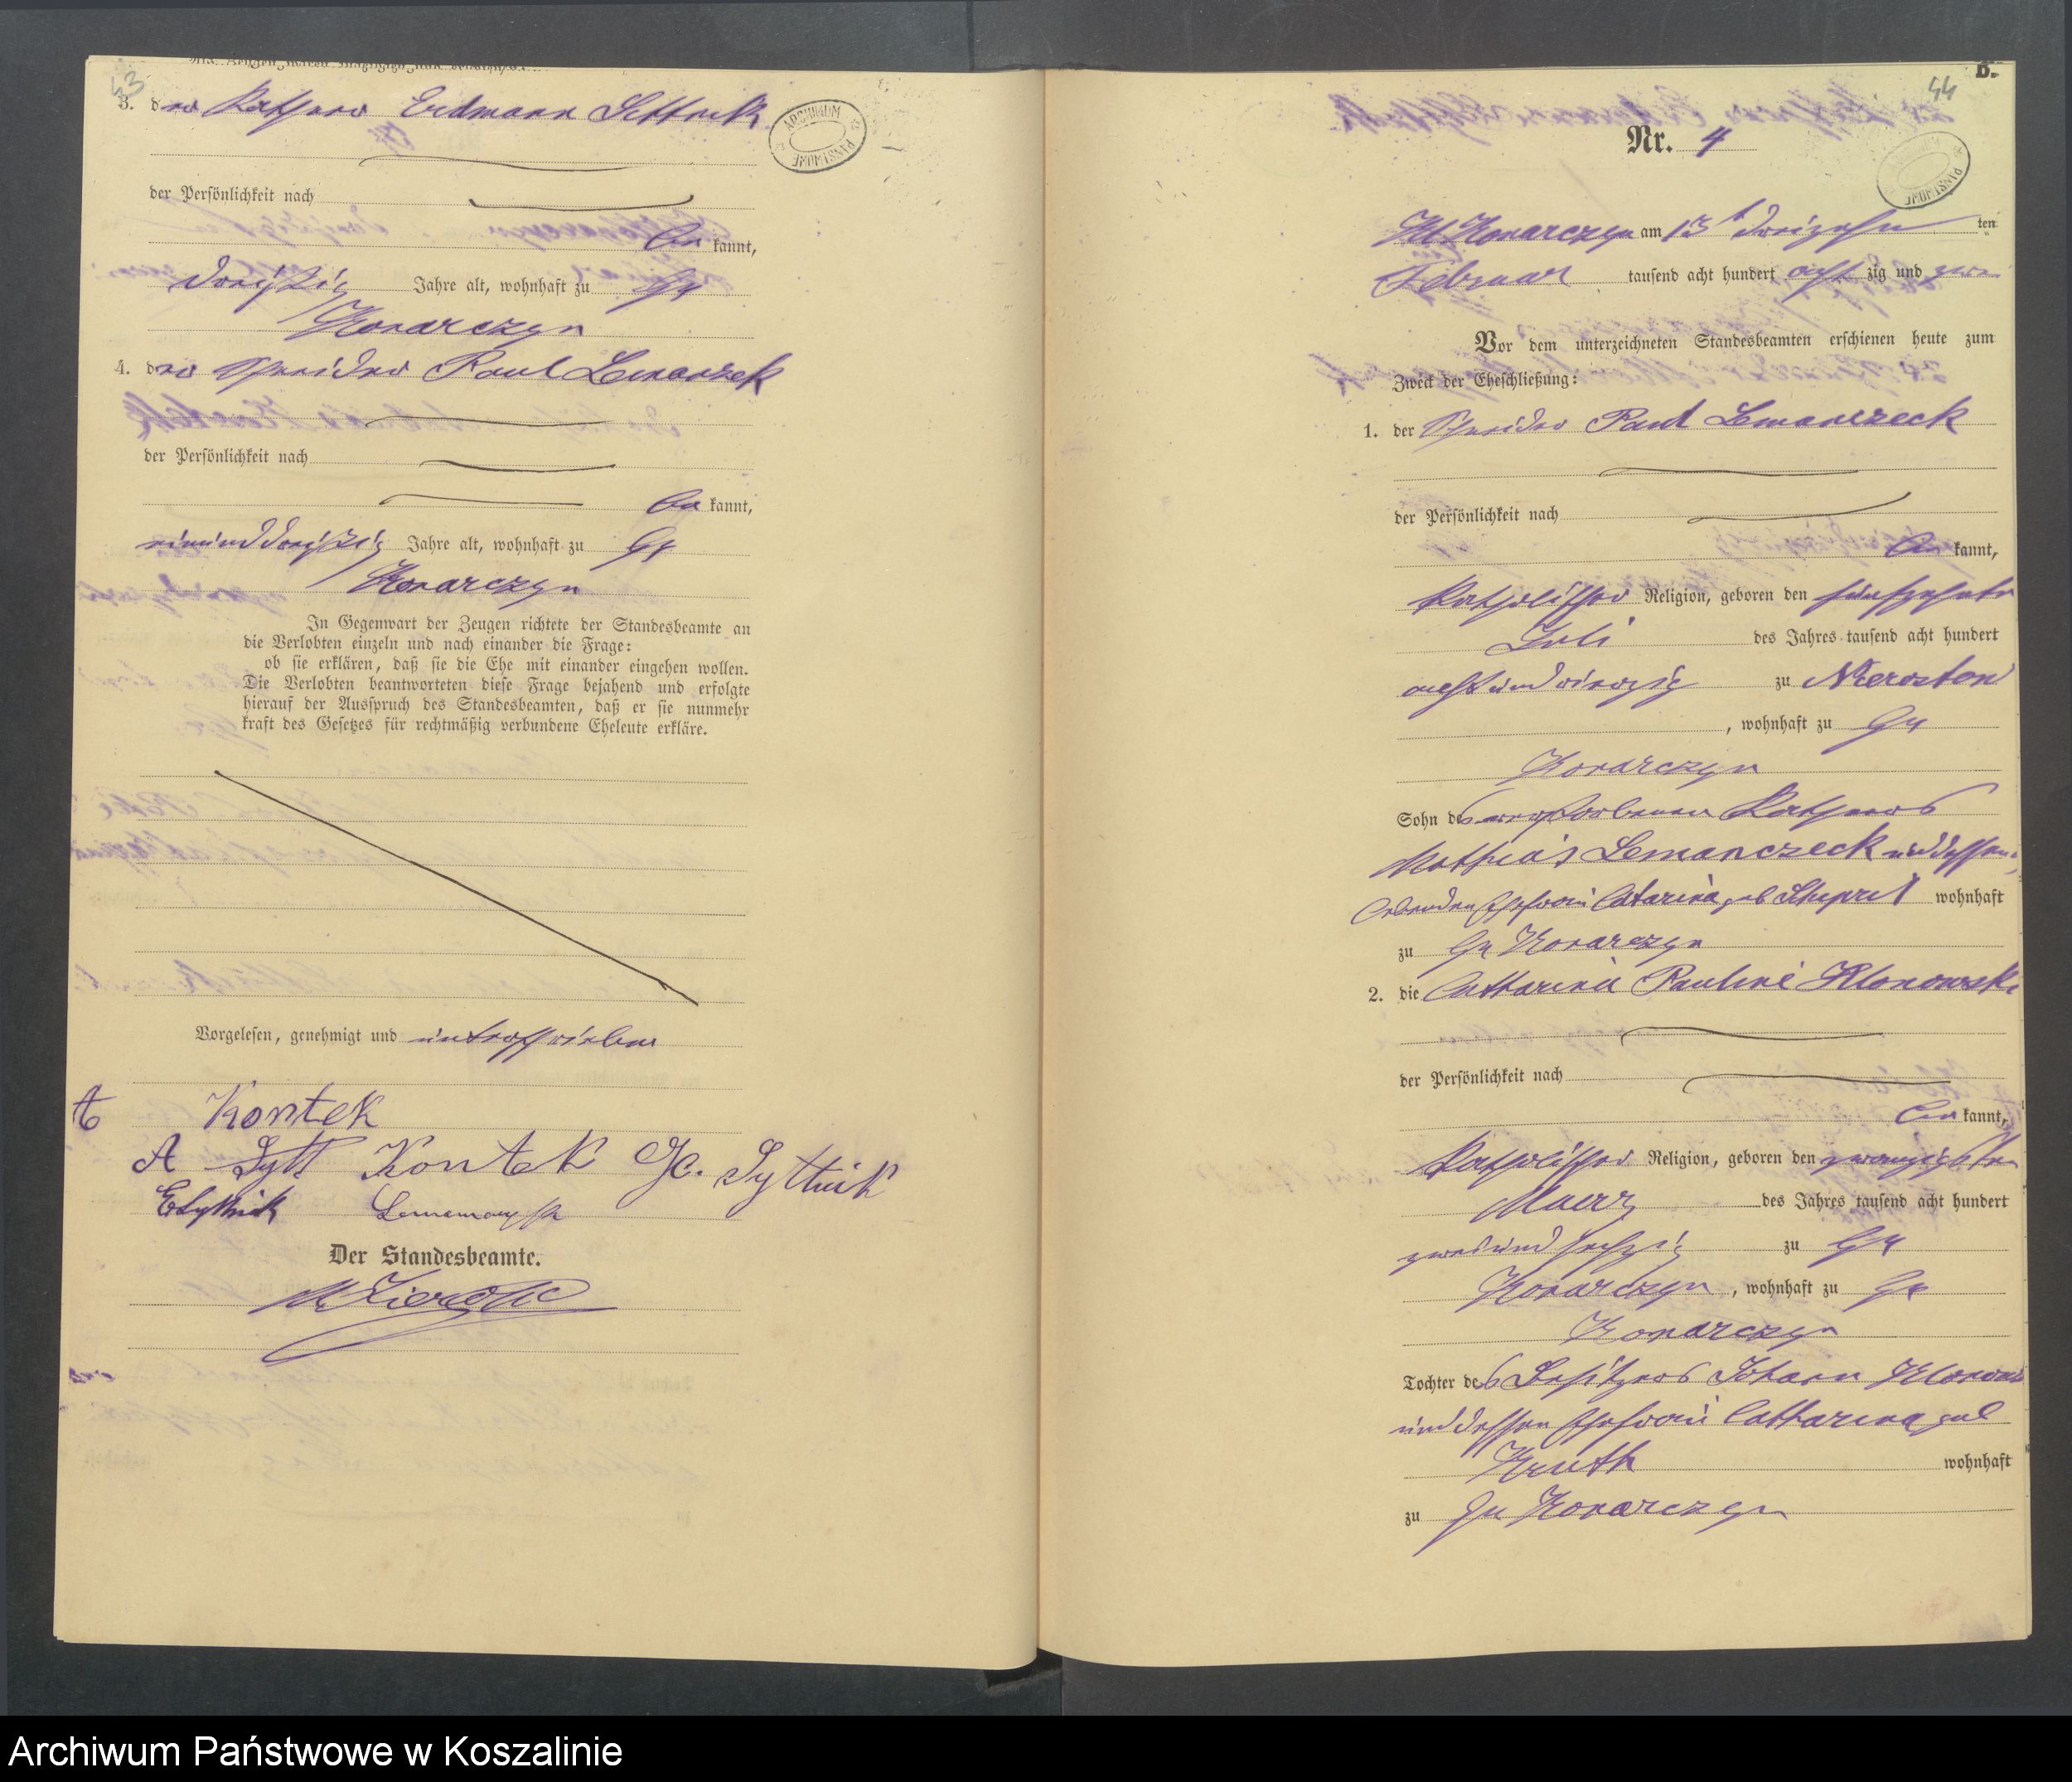 43
3. der Kathner Erdmann Littnik
ARCHIWUM PAŃSTWOWE
der Persönlichkeit nach
be kannt,
dreißig Jahre alt, wohnhaft zu Gr
Konarczyn
4. der Schneider Paul Lemanzek
der Persönlichkeit nach
be kannt,
einunddreißig Jahre alt, wohnhaft zu Gr
Konarczyn
In Gegenwart der Zeugen richtete der Standesbeamte an
die Verlobten einzeln und nach einander die Frage:
ob sie erklären, daß sie die Ehe mit einander eingehen wollen.
Die Verlobten beantworteten diese Frage bejahend und erfolgte
hierauf der Ausspruch des Standesbeamten, daß er sie nunmehr
kraft des Gesetzes für rechtmäßig verbundene Eheleute erkläre.
Vorgelesen, genehmigt und unterschrieben
A Kontek
A Lytt Kontek Lyttnik
E Lyttnik
Der Standesbeamte.
B.
44
Nr. 4
Kl Konarczyn am 13t dreizehn ten
Februar tausend acht hundert acht zig und zwei
Vor dem unterzeichneten Standesbeamten erschienen heute zum
Zweck der Eheschließung:
1. der Schneider Paul Lemanczeck
der Persönlichkeit nach
be kannt,
katholischer Religion, geboren den fünfzehnten
Juli des Jahres tausend acht hundert
achtundvierzig zu
, wohnhaft zu Gr
Konarczyn
Sohn des verstorbenen Kathners
Mathias Lemanczeck und dessen
lebenden Ehefrau Catarina geb wohnhaft
zu Gr Konarczyn
2. die Catharina Pauline Klonowski
der Persönlichkeit nach
be kannt,
katholischer Religion, geboren den zwanzigsten
Maerz des Jahres tausend acht hundert
zweiundsechzig zu Gr
Konarczyn, wohnhaft zu Gr
Konarczyn
Tochter des Besitzers Johann Klonowski
und dessen Ehefrau Catharina geb
Kruth wohnhaft
zu Gr Konarczyn
Archiwum Państwowe w Koszalinie